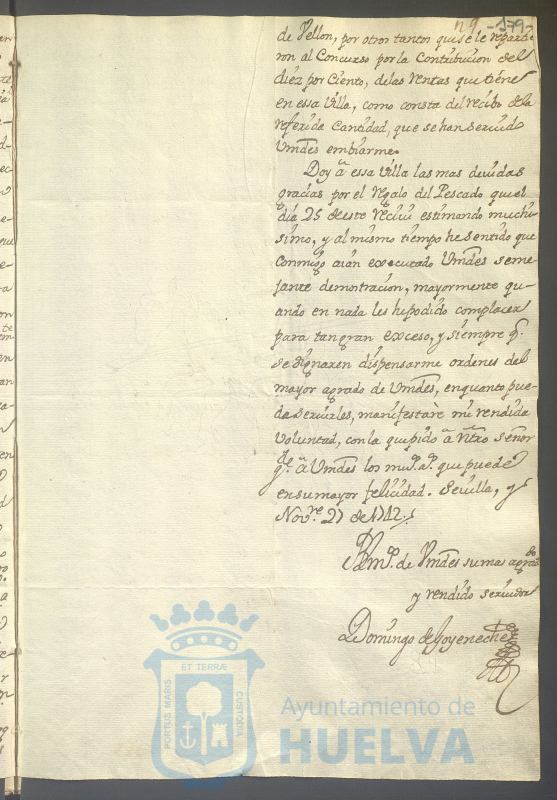 nº 9 -179-
de Vellon, por otros tantos que se le reparti
ron al Concurso por la Contribucion del
diez por Ciento, delas Ventas que tiene
en essa Villa, como consta del recibo dela
referida Cantidad, que se han seruido
Vmdes embiarme.
Doy â essa Villa las mas deuidas
gracias por el Regalo del Pescado que el
dia 25 de este reciui estimando muchi
simo, y al mismo tiempo he sentido que
conmigo aian executado Vmdes seme
jante demostracion, mayormente qu-
ando en nada les he podido complacer
para tan gran exceso, y siempre q.
se dignaren dispensarme ordenes del
mayor agrado de Vmdes, enquanto pue-
da seruirles, manifestarè mi rendida
Voluntad, con la que pido â Ntro Señor
gde â Vmdes los ms. as. que puede
en su mayor felicidad. Sevilla, y
Novre. 27 de 1742.
BlM. de Vmdes su mas agrdo
y rendido seruidor
Domingo de Goyeneche
ET TERRÆ
PORTUS MARIS
CUSTODIA
Ayuntamiento de
HUELVA